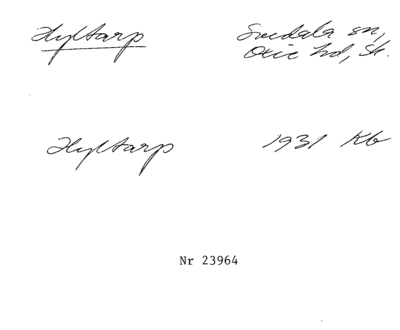 Hyltarp
Svedala sn,
Oxie hd, Sk.
Hyltarp 1931 Kb
Nr 23964